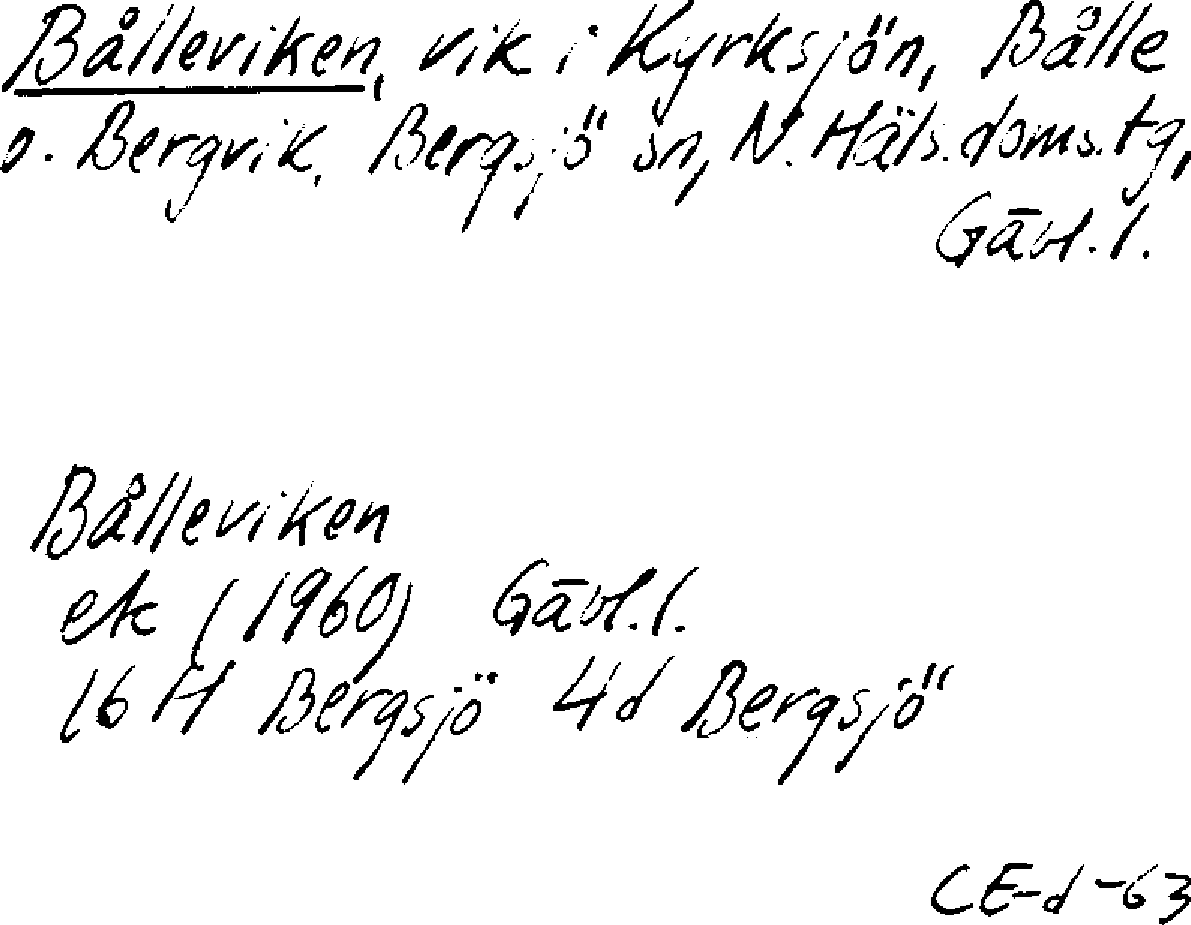 Bålleviken, vik i Kyrksjön, Bålle
o. Bergvik, Bergsjö sn, N. Häls. doms. tg,
Gävl. l.
Bålleviken
ek (1960) Gävl. l.
16 H Bergsjö 4d Bergsjö
CE-d-63